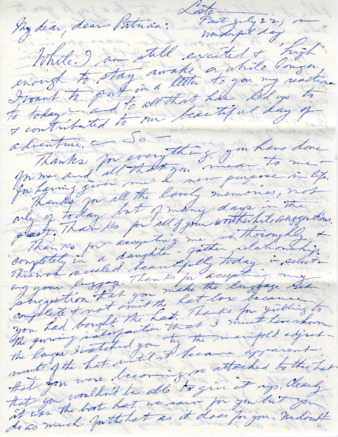 Late
Past July 22, a
wonderful day
My dear, dear Patricia:
While I am still excited & high
enough to stay awake a while longer
I want to put in a letter to you my reactions
to today - and to all that has led up to
& contributed to our beautiful day of
adventure. - So -
Thanks for everything you have done
for me and all that you mean to me -
for having given me a new purpose in life.
Thanks for all the lovely memories, not
only of today but of many days in the
past. Thanks for all of your worthwhile suggestions
Thanks for accepting me so thoroughly &
completely in a daughter father relationship.
This was revealed beautifully today in select-
ing your luggage. Thanks for accepting my
suggestion that you make the luggage set
complete & not omit the hat box because
you had bought the hat. Thanks for giving to me
the growing satisfaction that I must have shown
the longer I watched you try the manifold adjust-
ments of the hat until it became apparent
that you were becoming so attached to the hat
that you wouldn't be able to give it up. Clearly
it was the best hat we saw for you but you
do as much for that as it does for you. No doubt